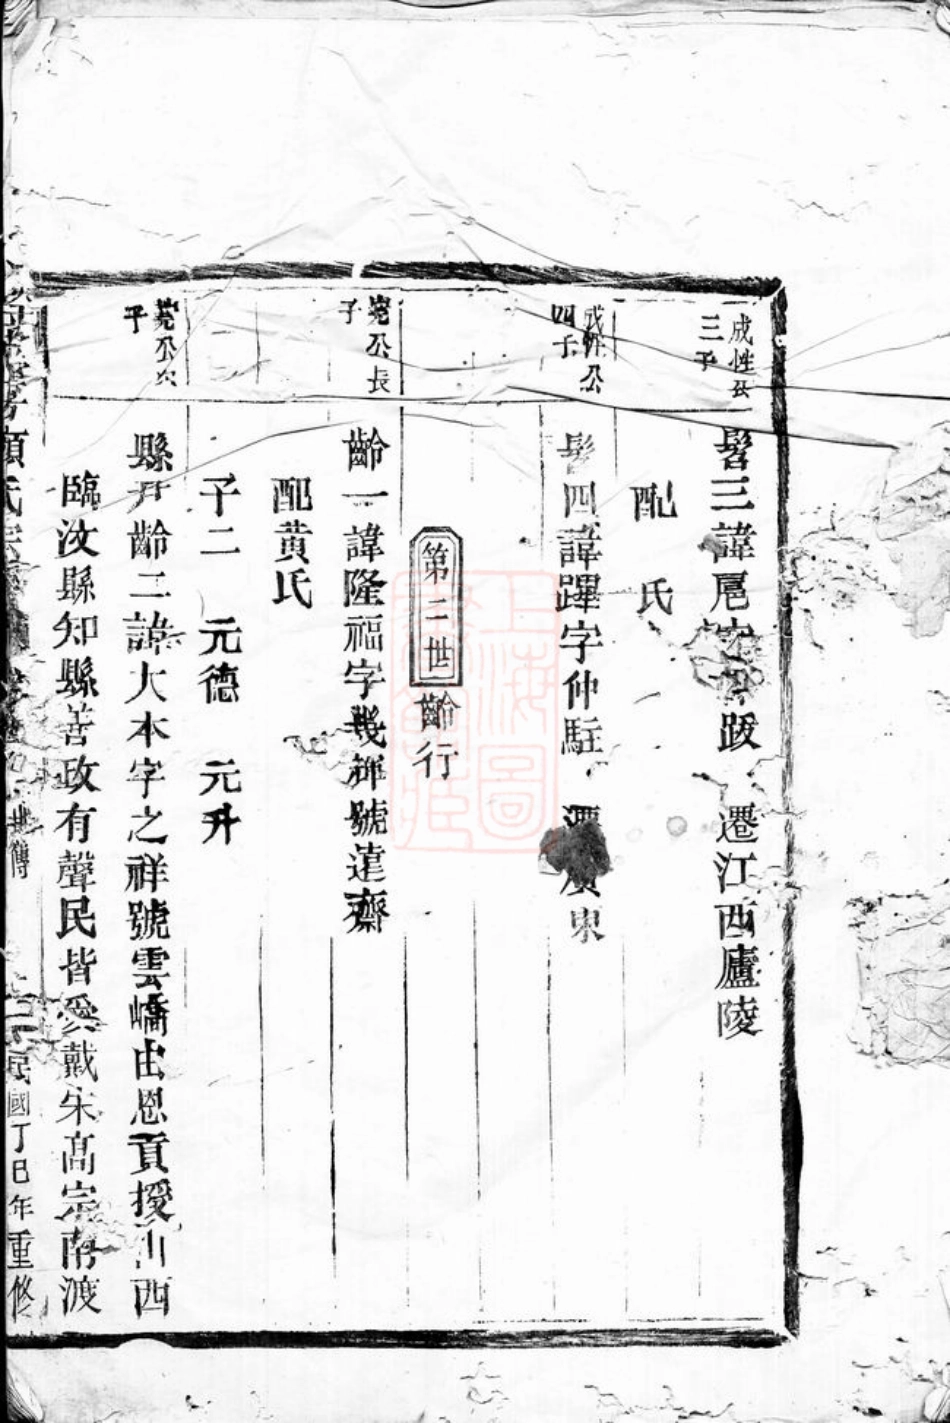 成性公
三子
髫三諱扈字 跋 遷江西廬陵
配 氏
成性公
四子
髫四諱蹕字仲駐 遷廣東
第二世 齡行
堯公長
子
齡一諱隆福字幾祥號遠齋
配黃氏
子二 元德 元升
堯公次
子
縣尹齡二諱大本字之祥號雲嶠由恩貢授山西
臨汝縣知縣善政有聲民皆愛戴宋高宗南渡
氏宗 世傳 民國丁巳年重修
上海圖書館藏